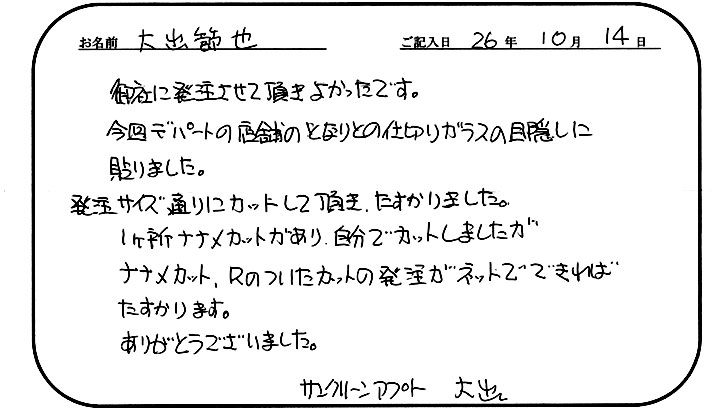 お名前 大出節也 ご記入日 26年 10月 14日
御社に発注させて頂きよかったです。
今回デパートの店舗のとなりとの仕切りガラスの目隠しに
貼りました。
発注サイズ通りにカットして頂き、たすかりました。
1ヶ所ナナメカットがあり、自分でカットしましたが
ナナメカット、Rのついたカットの発注がネットでできれば
たすかります。
ありがとうございました。
サンクリーンアプト 大出